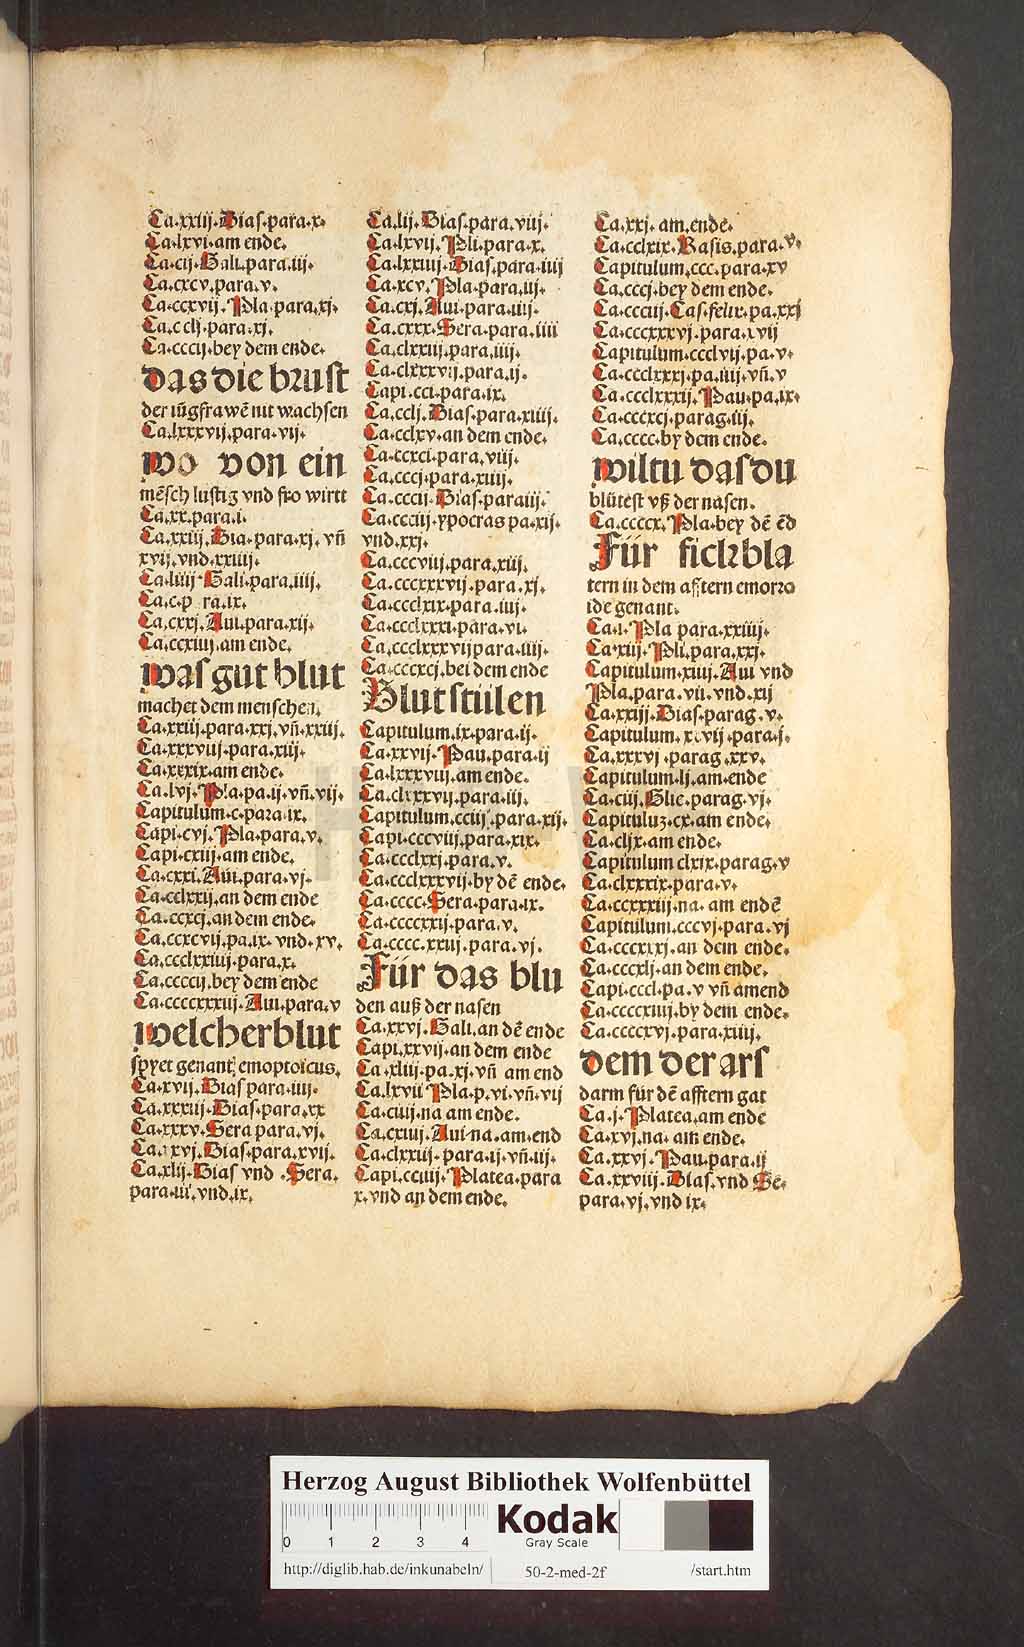 Ca.xxiij.Dias.para.x.
Ca.lxvi.am ende.
Ca.cij.Gali.para.iij.
Ca.cxcv.para.v.
Ca.ccxvij.Pla.para.xj.
Ca.cclj.para.xj.
Ca.cccij.bey dem ende.
das die brust
der iũgfrawẽ nit wachsen
Ca.lxxxvij.para.vij.
wo von ein
mẽsch lustig vnd fro wirtt
Ca.xx.para.i.
Ca.xxiij.Dia.para.xj.vñ
xvij.vnd.xxiiij.
Ca.liiij.Gali.para.iiij.
Ca.c.p ra.ix.
Ca.cxxj.Aui.para.xij.
Ca.ccxiiij.am ende.
was gut blut
machet dem menschen.
Ca.xxiij.para.xxj.vñ.xxiij.
Ca.xxxviij.para.xiij.
Ca.xxxix.am ende.
Ca.lvj.Pla.pa.ij.vñ.vij.
Capitulum.c.para.ix.
Capi.cvj.Pla.para.v.
Capi.cxiij.am ende.
Ca.cxxi.Aui.para.vj.
Ca.cclxxij.an dem ende
Ca.ccxcj.an dem ende.
Ca.ccxcvij.pa.ix.vnd.xv.
Ca.ccclxxiiij.para.x.
Ca.ccccij.bey dem ende
Ca.ccccxxxiij.Aui.para.v
welcher blut
spyet genant emoptoicus.
Ca.xvij.Dias para.iiij.
Ca.xxxiij.Dias.para.xx
Ca.xxxv.Sera para.vj.
Ca. xvj.Dias.para.xvij.
Ca.xlij.Dias vnd .Sera.
para.iij.vnd.ix.
Ca.lij.Dias.para.viij.
Ca.lxvij.Pli.para.x.
Ca.lxxiiij.Dias.para.iiij
Ca.xcv.Pla.para.iij.
Ca.cxj.Aui.para.iiij.
Ca.cxxx.Sera.para.iiii
Ca.clxxiij.para.iiij.
Ca.clxxxvij.para.ij.
Capi.cci.para.ix.
Ca.cclj.Dias.para.xiiij.
Ca.cclxv.an dem ende.
Ca.ccxci.para.viij.
Ca.cccj.para.xiij.
Ca.cccij.Dias.para iij.
Ca.ccciij.ypocras pa.xij.
vnd.xxj.
Ca.cccviij.para.xiij.
Ca.cccxxxvij.para.xj.
Ca.ccclxix.para.iij.
Ca.ccclxxxi.para.vi.
Ca.ccclxxxvij para.iiij.
Ca.cccxcj.bei dem ende
Blut stillen
Capitulum.ix.para.ij.
Ca.xxvij.Pau.para.ij
Ca.lxxxviij.am ende.
Ca.clxxxvij.para.iij.
Capitulum.cciij.para.xij.
Capi.cccviij.para.xix.
Ca.ccclxxj.para.v.
Ca.ccclxxxvij.by dẽ ende.
Ca.cccc.Sera.para.ix.
Ca.ccccxxij.para.v.
Ca.cccc.xxiij.para.vj.
Für das blu
den auß der nasen
Ca.xxvj.Gali.an dẽ ende
Capi.xxvij.an dem ende
Ca.xliij.pa.xj.vñ am end
Ca.lxvij Pla.p.vi.vñ.vij
Ca.ciiij.na am ende.
Ca.cxiiij.Aui.na.am.end
Ca.clxxiij.para.ij.vñ.iij.
Capi.cciiij.Platea.para
x.vnd an dem ende.
Ca.xxj.am.ende.
Ca.cclxix.Rasis.para.v.
Capitulum.ccc.para.xv
Ca.cccj.bey dem ende.
Ca.ccciij.Cas.felix.pa.xxj
Ca.cccxxxvj.para.xvij
Capitulum.ccclvij.pa.v.
Ca.ccclxxxj.pa.iiij.vñ.v
Ca.ccclxxxij.Pau.pa.ix.
Ca.cccxcj.parag.iij.
Ca.cccc.by dem ende.
wiltu das du
blütest vß der nasen.
Ca.ccccx.Pla.bey dẽ ẽd
Für fickbla
tern in dem afftern emorro
ide genant.
Ca.i.Pla para.xxiiij.
Ca.xij.Pli.para.xxj.
Capitulum.xiiij.Aui vnd
Pla.para.vij.vnd.xij
Ca.xxiij.Dias.parag.v.
Capitulum.xxvij.para.j.
Ca.xxxvj.parag.xxv.
Capitulum.lj.am.ende
Ca.ciij.Glie.parag.vj.
Capituluz.cx.am ende.
Ca.cljx.am ende.
Capitulum clxix.parag.v
Ca.clxxxix.para.v.
Ca.ccxxxiij.na. am endẽ
Capitulum.cccvj.para.vj
Ca.cccxxxj.an dem ende.
Ca.cccxlj.an dem ende.
Capi.cccl.pa.v vñ amend
Ca.ccccxiiij.by dem ende.
Ca.ccccxvj.para.xiiij.
dem der ars
darm für dẽ afftern gat
Ca.j.Platea.am ende
Ca.xvj.na. am ende.
Ca.xxvj.Pau.para.ij
Ca.xxviij.Dias.vnd Se.
para.vj.vnd ix.
Herzog August Bibliothek Wolfenbüttel
0 1 2 3 4
Kodak
Gray Scale
http://diglib.hab.de/inkunabeln/ 50-2-med-2f /start.htm